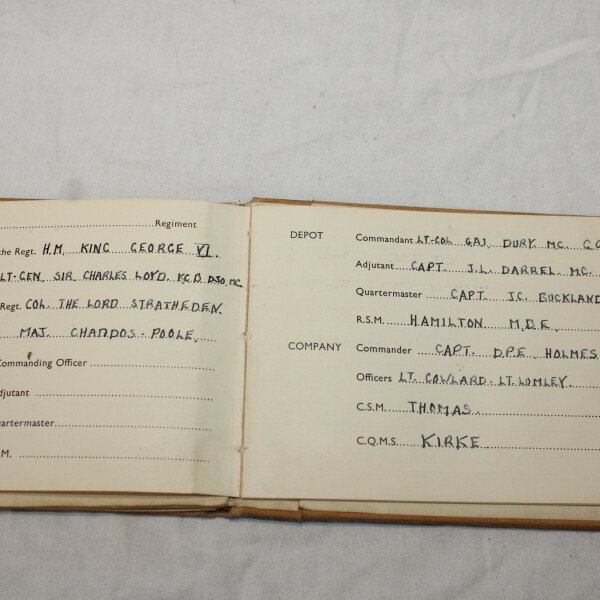 Regiment
the Regt. H.M. KING GEORGE VI.
LT-GEN. SIR CHARLES LOYD. K.C.B. D.S.O. M.C.
Regt. COL. THE LORD STRATHEDEN.
MAJ. CHANDOS-POOLE.
Commanding Officer
djutant
uartermaster
M.
DEPOT Commandant LT-COL G.A.I. DURY. M.C. C.G
Adjutant CAPT. J.L. DARREL. M.C.
Quartermaster CAPT. J.C. BUCKLAND
R.S.M. HAMILTON M.B.E.
COMPANY Commander CAPT. D.P.E. HOLMES
Officers LT. COWLARD. LT. LOMLEY.
C.S.M. THOMAS.
C.Q.M.S. KIRKE